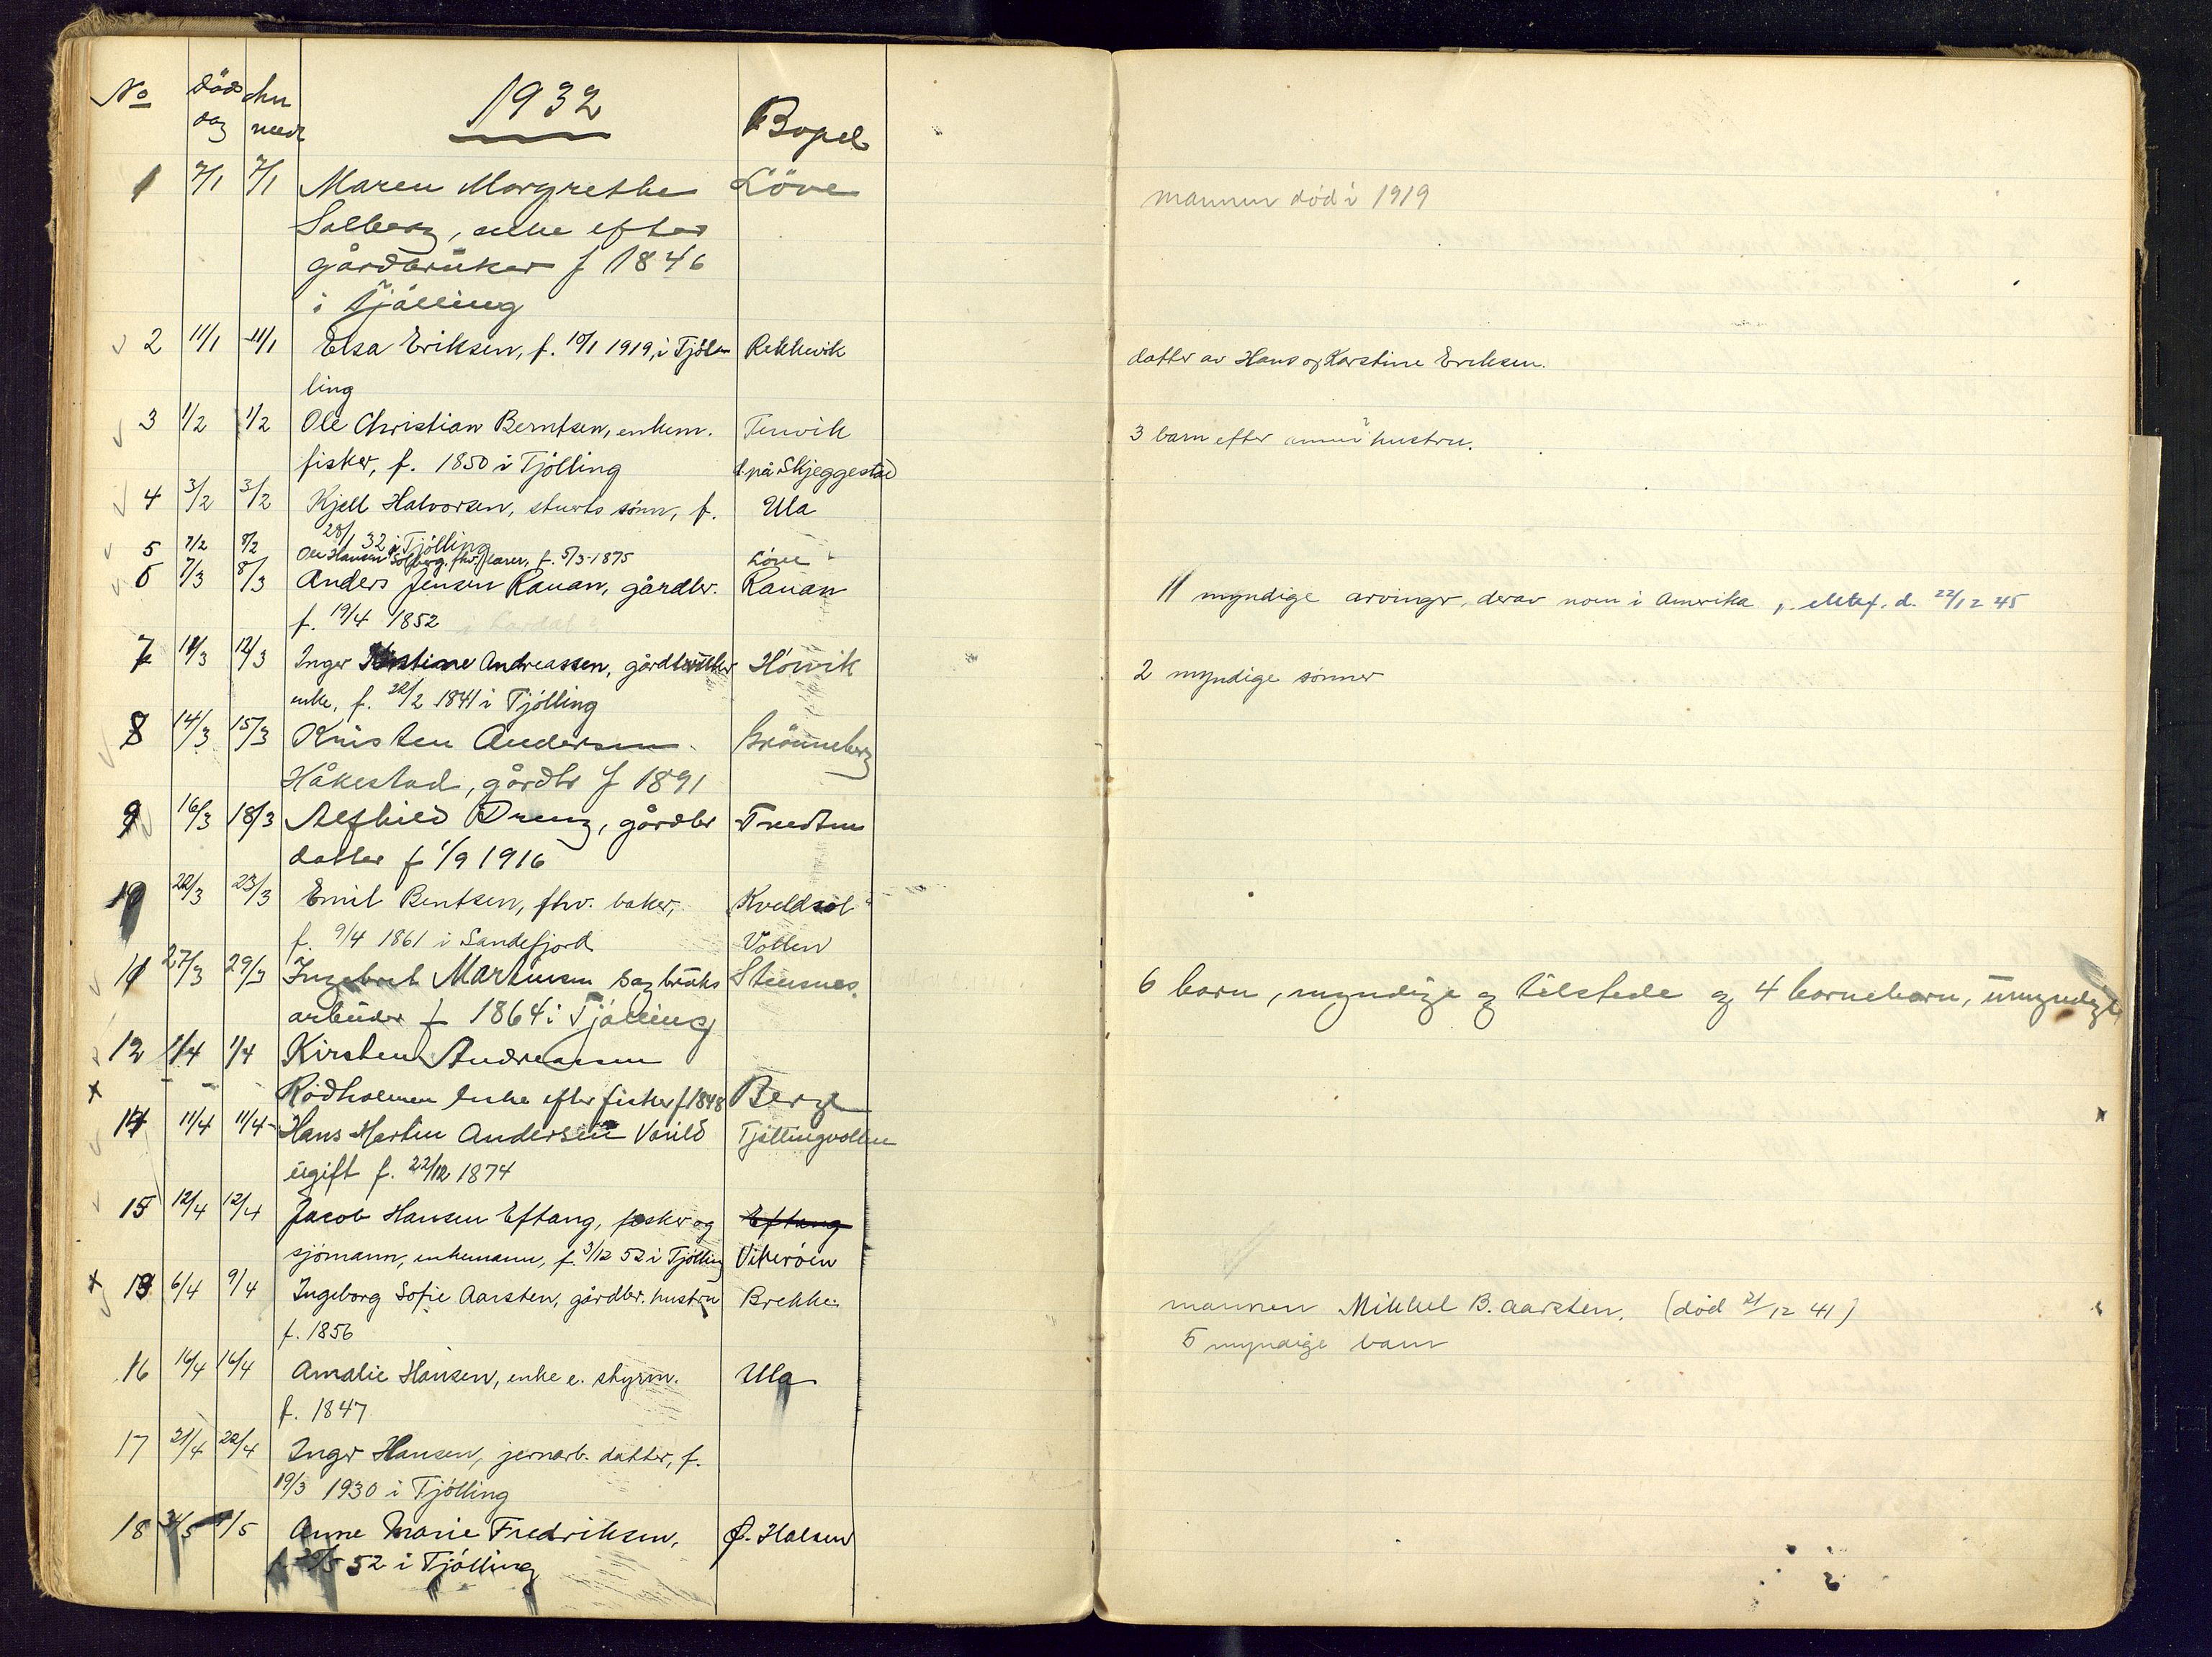 No döds dag anmeldt 1932 Bopel
1 7/1 7/1 Maren Margrethe Löve
Solberg, enke efter
gårdbruker f 1846
i Tjölling
mannen död i 1919
2 11/1 11/1 Elsa Eriksen, f. 10/1 1919, i Tjöl- Rekkevik
ling
datter av Hans og Karstine Eriksen.
3 1/2 1/2 Ole Christian Berntsen, enkem. Tenvik
fisker, f. 1850 i Tjölling d. på Skjeggestad
3 barn efter hustru.
4 3/2 3/2 Kjell Halvorsen, stuerts sönn, f. Ula
28/1 32 i Tjölling
5 7/2 8/2 Ole Hansen Solberg, fhv. f. 5/3-1875 Löve
6 7/3 8/3 Anders Jensen Rauan, gårdbr. Rauan
f. 19/4 1852 i Lardal?
11 myndige arvinger, derav noen i Amerika, ektef. d. 22/12 45
7 11/3 12/3 Inger Kirstine Andreassen, gårdbruker Höivik
enke, f. 22/2 1841 i Tjölling
2 myndige sönner
8 14/3 15/3 Kristen Andersen Grönneberg
Håkestad, gårdbr f 1891
9 16/3 18/3 Alfhild Dreng, gårdbr Tvedten
datter f 1/9 1916
10 22/3 23/3 Emil Bentsen, fhv. baker, "Kveldsol"
f. 9/4 1861 i Sandefjord Vollen
11 27/3 29/3 Ingebret Martinsen sagbruks Stensnes
arbeider f 1864 i Tjölling
6 barn, myndige og tilstede og 4 barnebarn, umyndige
12 1/4 1/4 Kirsten Andreassen
x - - Rödholmen enke efter fisker f 1848 Berge
x
14 11/4 11/4 Hans Martin Andersen Varild Tjöllingvollen
ugift f. 22/12 1874
15 12/4 12/4 Jacob Hansen Eftang, fisker og Eftang
sjömann, enkemann, f. 3/12 52 i Tjölling Vikeröen
x 13 6/4 9/4 Ingeborg Sofie Aarsten, gårdbr. hustru Brekke
f. 1856
mannen Mikkel B. Aarsten. (död 21/12 41)
5 myndige barn
16 16/4 16/4 Amalie Hansen, enke e. styrm. Ula
f. 1847
17 21/4 22/4 Inger Hansen, jernarb. datter, f.
19/3 1930 i Tjölling
18 /5 /5 Anne Marie Fredriksen, Ö. Halsen
f. 52 i Tjölling